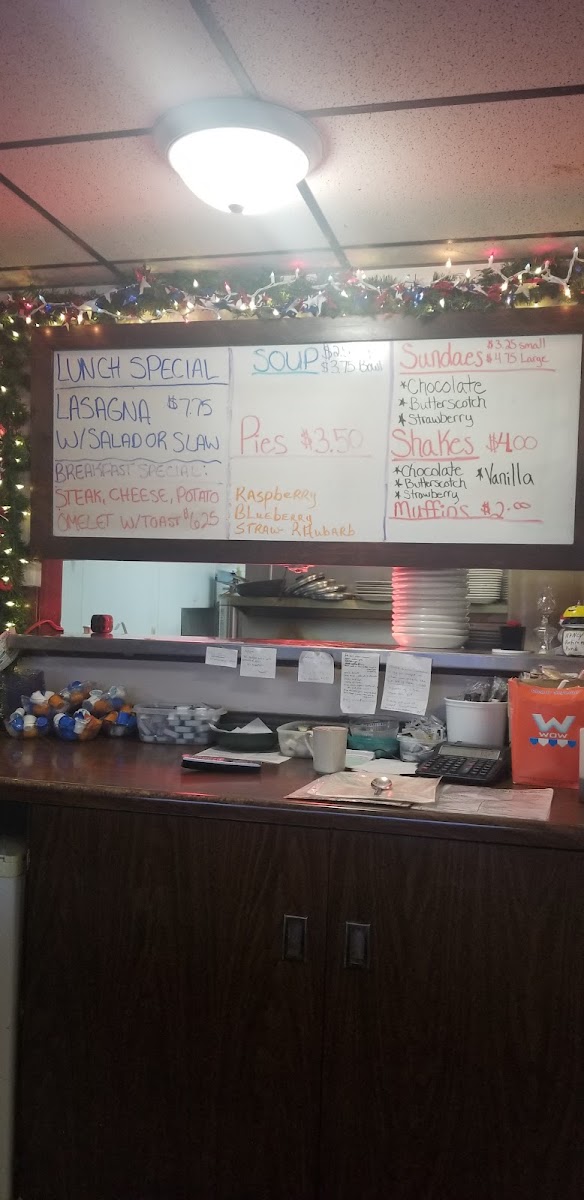 LUNCH SPECIAL
LASAGNA $7.75
W/SALAD OR SLAW
BREAKFAST SPECIAL:
STEAK, CHEESE, POTATO
OMELET W/TOAST $6.25
SOUP
$3.75 Bowl
Pies $3.50
Raspberry
Blueberry
STRAW-RHubarb
Sundaes $3.25 small
$4.75 Large
*Chocolate
*Butterscotch
*Strawberry
Shakes $4.00
*Chocolate *Vanilla
*Butterscotch
*Strawberry
Muffins $2.00
W
WOW